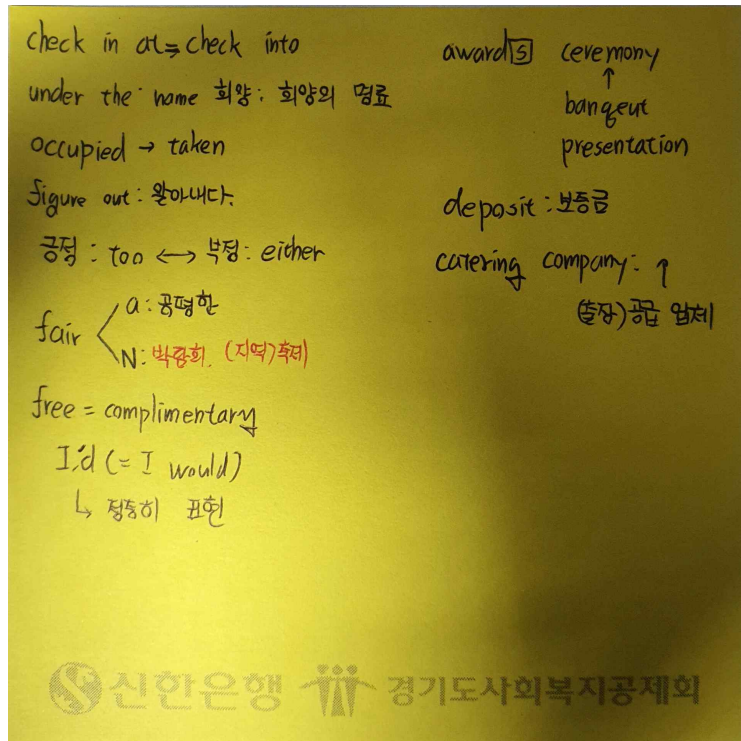 check in at = check into
under the name 회양: 회양의 명료
occupied → taken
figure out: 알아내다.
긍정: too ↔ 부정: either
fair
a: 공평한
N: 박람회. (지역)축제
free = complimentary
I'd (= I would)
↳ 정중히 표현
awards ceremony
↑
banqeut
presentation
deposit: 보증금
catering company: ↑
(출장) 공급 업체
신한은행 경기도사회복지공제회